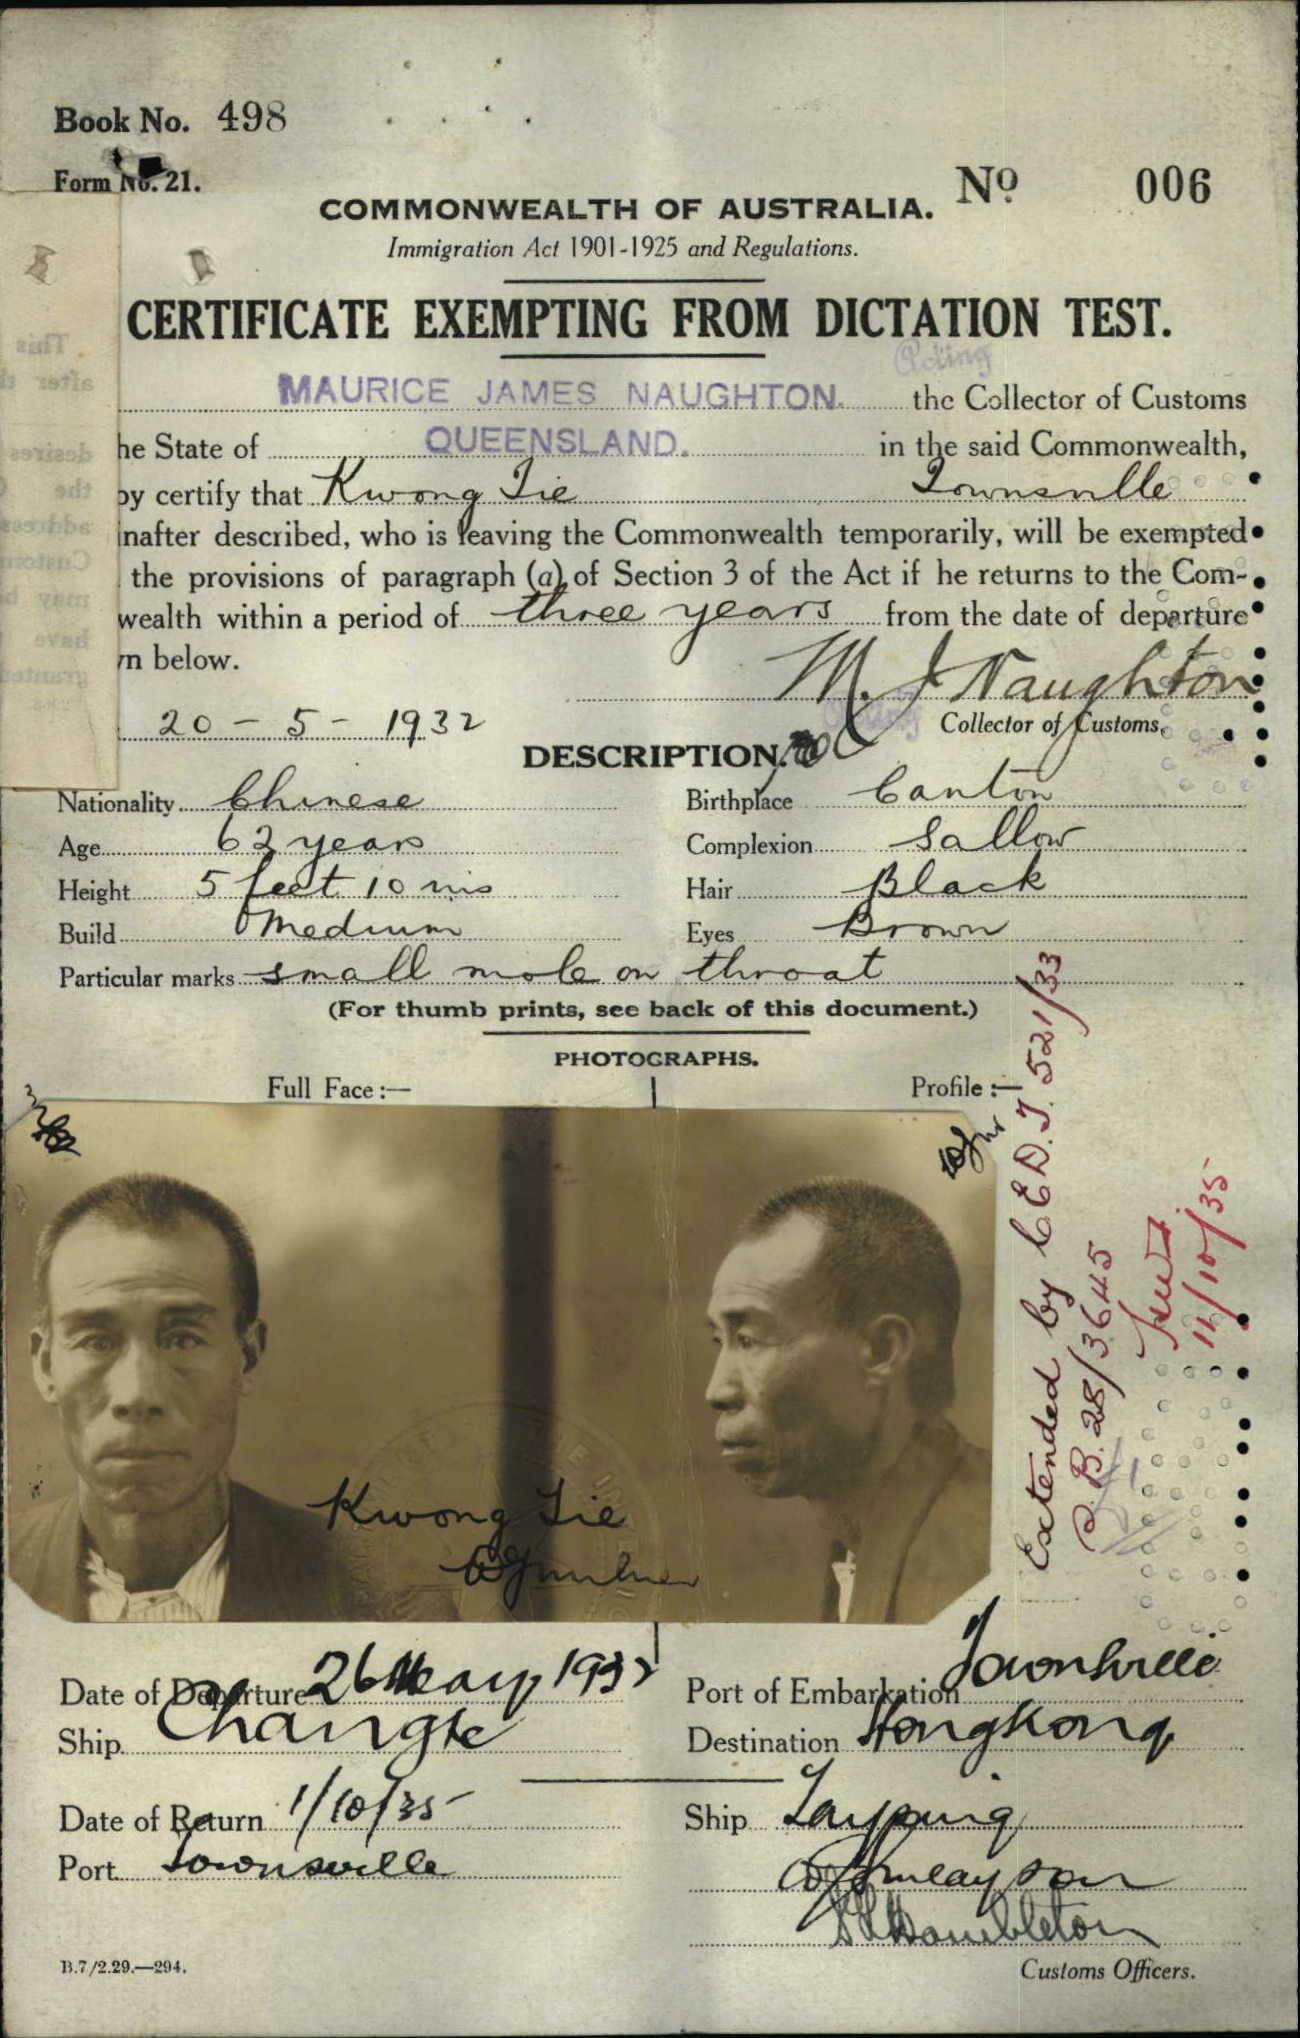 Book No. 498
Form No. 21.
No 006
COMMONWEALTH OF AUSTRALIA.
Immigration Act 1901-1925 and Regulations.
CERTIFICATE EXEMPTING FROM DICTATION TEST.
Acting
MAURICE JAMES NAUGHTON. the Collector of Customs
he State of QUEENSLAND. in the said Commonwealth,
by certify that Kwong Tie Townsville
inafter described, who is leaving the Commonwealth temporarily, will be exempted
the provisions of paragraph (a) of Section 3 of the Act if he returns to the Com-
wealth within a period of three years from the date of departure
n below.
M. J Naughton
20 - 5 - 1932
Collector of Customs.
DESCRIPTION.
Nationality Chinese Birthplace Canton
Age 62 years Complexion Sallow
Height 5 feet 10 ins Hair Black
Build Medium Eyes Brown
Particular marks small mole on throat
(For thumb prints, see back of this document.)
PHOTOGRAPHS.
Full Face :— Profile :—
Kwong Tie
Extended by C.E.D.T. 521/33
C.B. 28/3645
11/10/35
Date of Departure 26 May 1932 Port of Embarkation Townsville
Ship Changte Destination Hongkong
Date of Return 1/10/35 Ship Taiping
Port Townsville
Hambleton
B.7/2.29.—294.
Customs Officers.
This
after t
desires
the
address
Custom
may b
have
granted